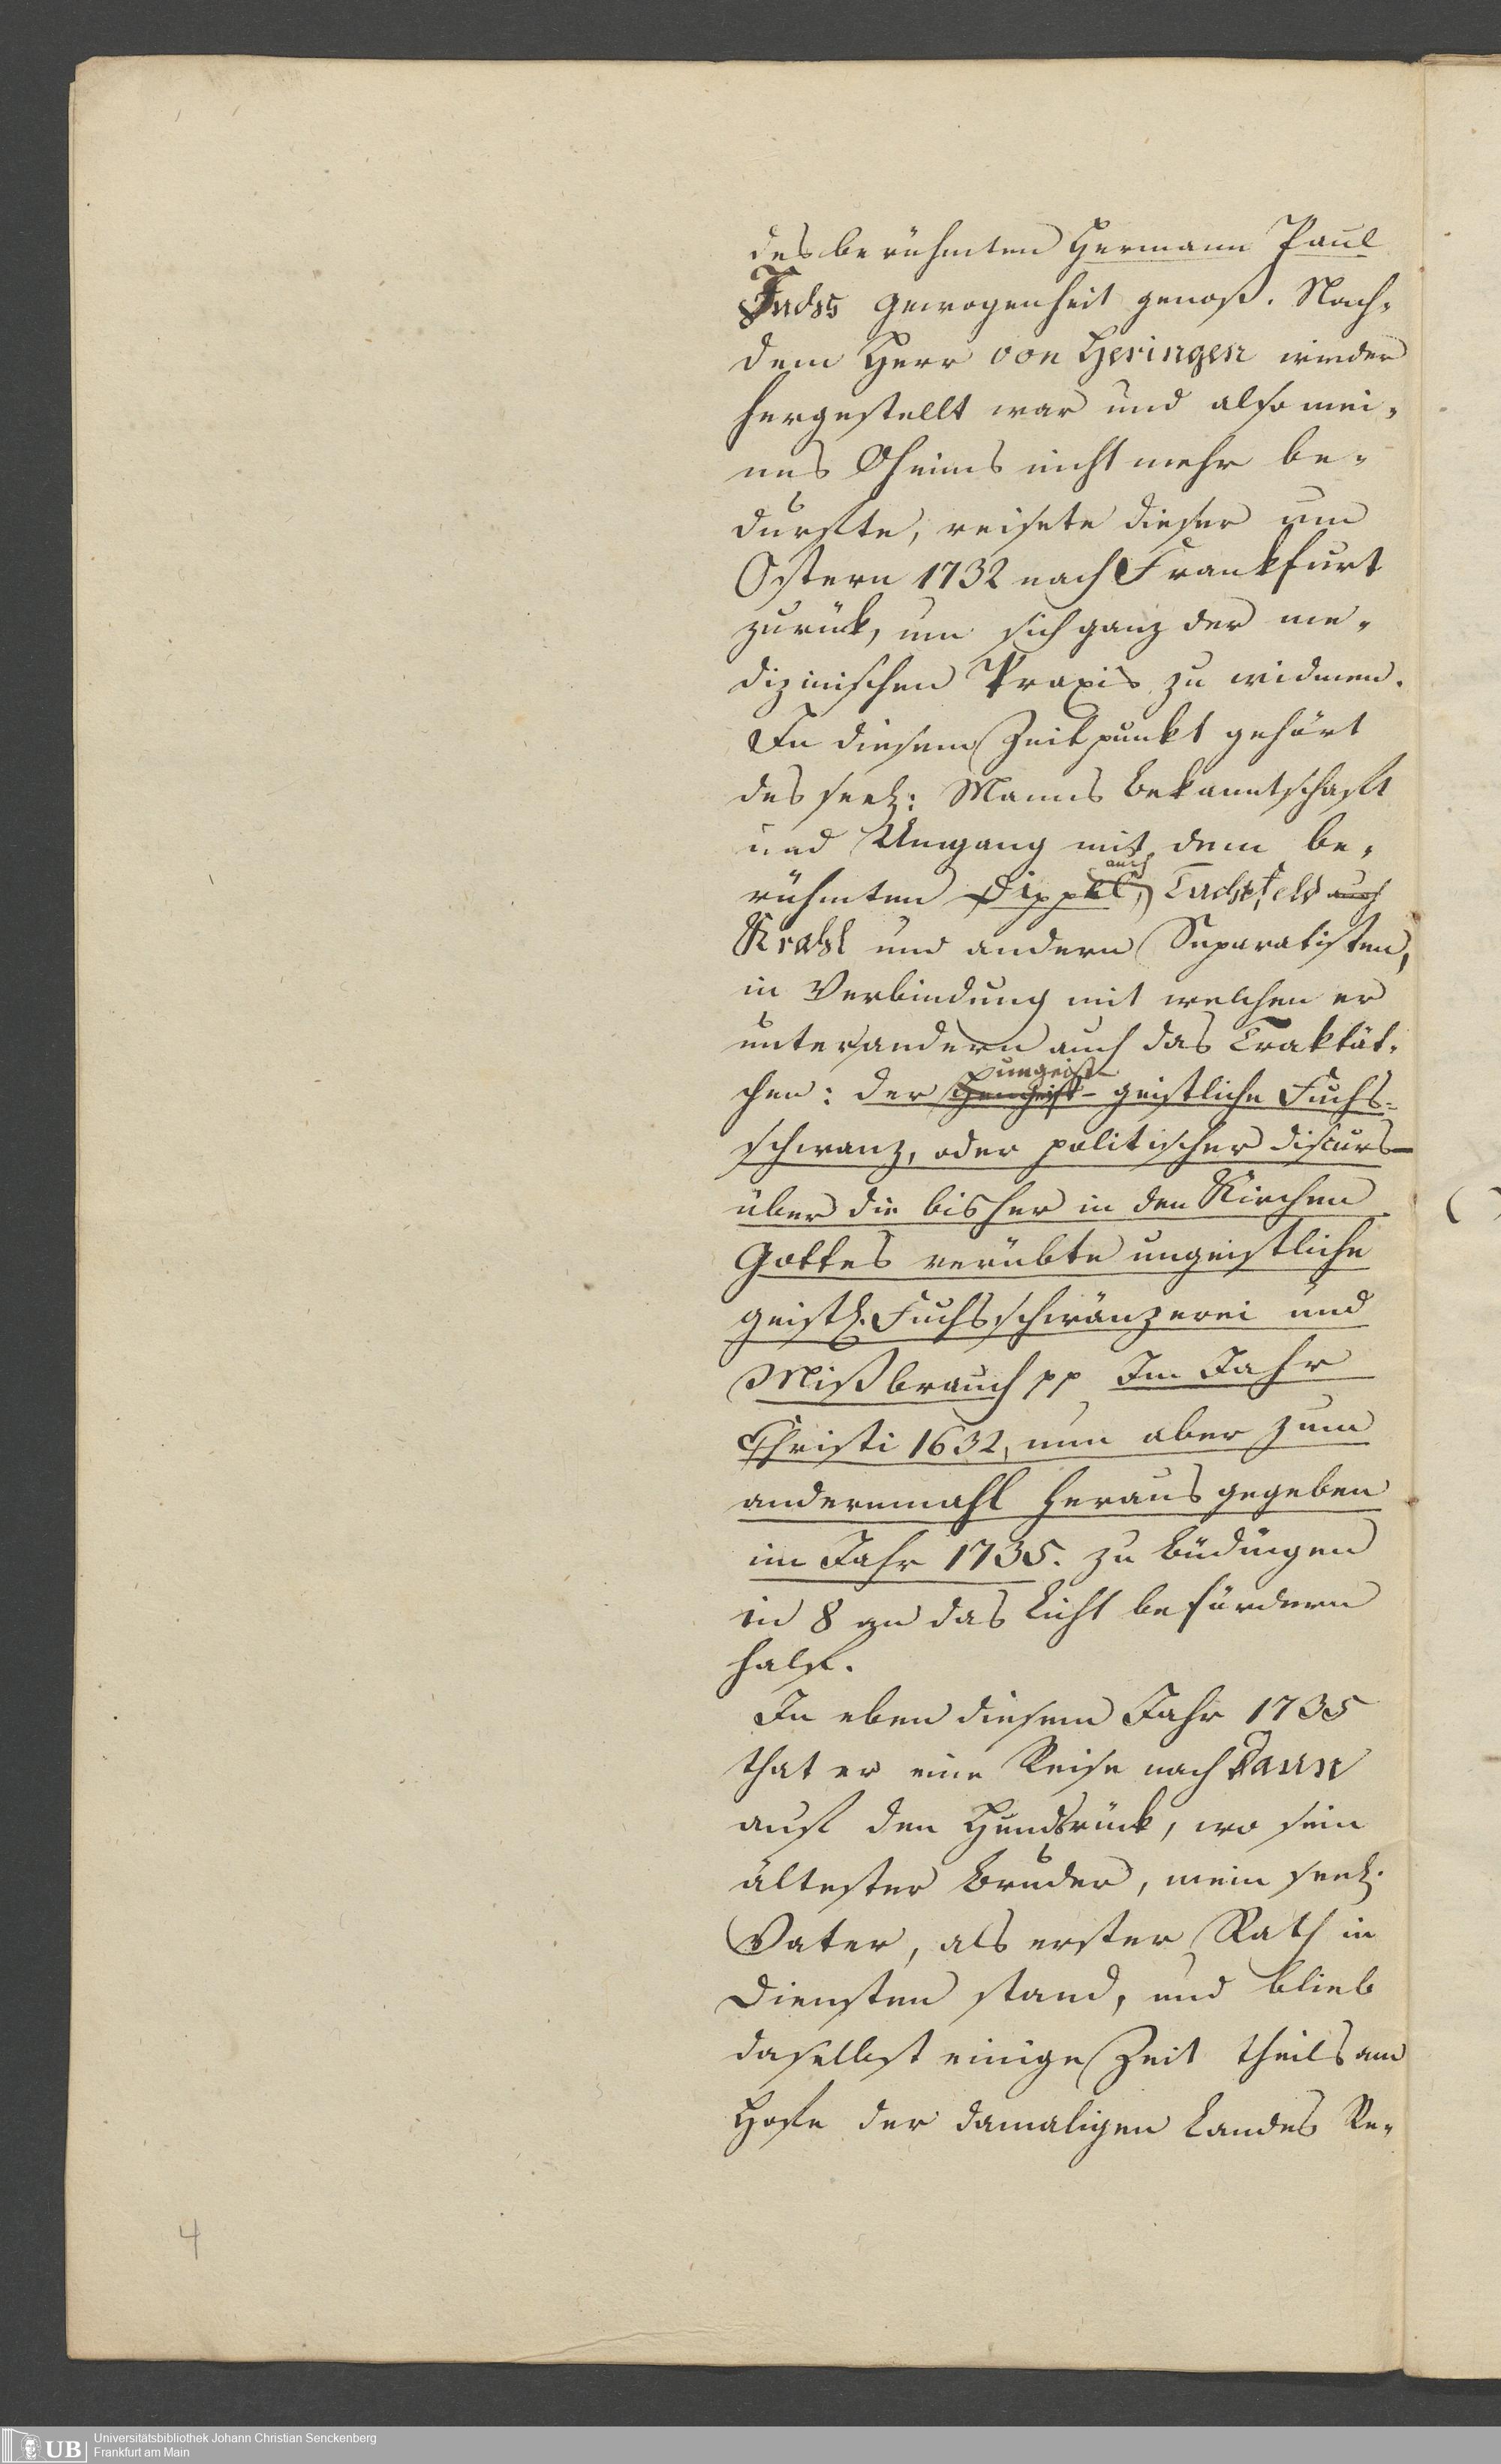 des berühmten Hermann Paul
Juchs Gewogenheit genoß. Nach-
dem Herr von Heringen wieder
hergestellt war und also mei-
nes Oheims nicht mehr be-
durfte, reisete dieser um
Ostern 1732 nach Frankfurt
zurück, um sich ganz der me-
dizinischen Praxis zu widmen.
In diesem Zeitpunkt gehört
des seel: Manns Bekanntschaft
und Umgang mit dem be-
auch
rühmten Dippel, Tuchtfeld auch
Krahl und andern Separatisten,
in Verbindung mit welchen er
unterandern auch das Traktät-
ungeist-
chen: der geistliche Fuchs-
schwanz, oder politischer Discurs
über die bisher in den Kirchen
Gottes verübte ungeistliche
geistl. Fuchsschwänzerei und
Mißbrauch pp Im Jahr
Christi 1632, nun aber zum
andernmahl herausgegeben
im Jahr 1735. zu Büdingen
in 8 an das Licht befördern
half.
In eben diesem Jahr 1735
that er eine Reise nach Daun
auf den Hundsrück, wo sein
ältester Bruder, mein seel.
Vater, als erster Rath in
Diensten stand, und blieb
daselbst einige Zeit theils am
Hofe der damaligen Landes Re-
4
UB
Universitätsbibliothek Johann Christian Senckenberg
Frankfurt am Main